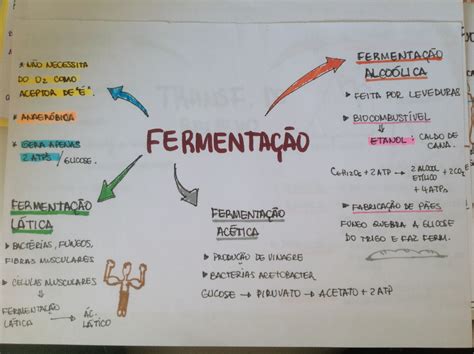 FERMENTAÇÃO
* NÃO NECESSITA
DO O2 COMO
ACEPTOR DE "E-".
* ANAERÓBIA
* GERA APENAS
2 ATPs / GLICOSE.
FERMENTAÇÃO
ALCOÓLICA
▸ FEITA POR LEVEDURAS
▸ BIOCOMBUSTÍVEL
→ ETANOL: CALDO DE
CANA.
C6H12O6 + 2 ATP → 2 ÁLCOOL ETÍLICO + 2CO2
+ 4 ATPs
▸ FABRICAÇÃO DE PÃES.
FUNGO QUEBRA A GLICOSE
DO TRIGO E FAZ FERM.
FERMENTAÇÃO
LÁTICA
▸ BACTÉRIAS, FUNGOS,
FIBRAS MUSCULARES
▸ CÉLULAS MUSCULARES
FERMENTAÇÃO LÁTICA → ÁC. LÁTICO
FERMENTAÇÃO
ACÉTICA
▸ PRODUÇÃO DE VINAGRE
▸ BACTÉRIAS ACETOBACTER
GLICOSE → PIRUVATO → ACETATO + 2 ATP